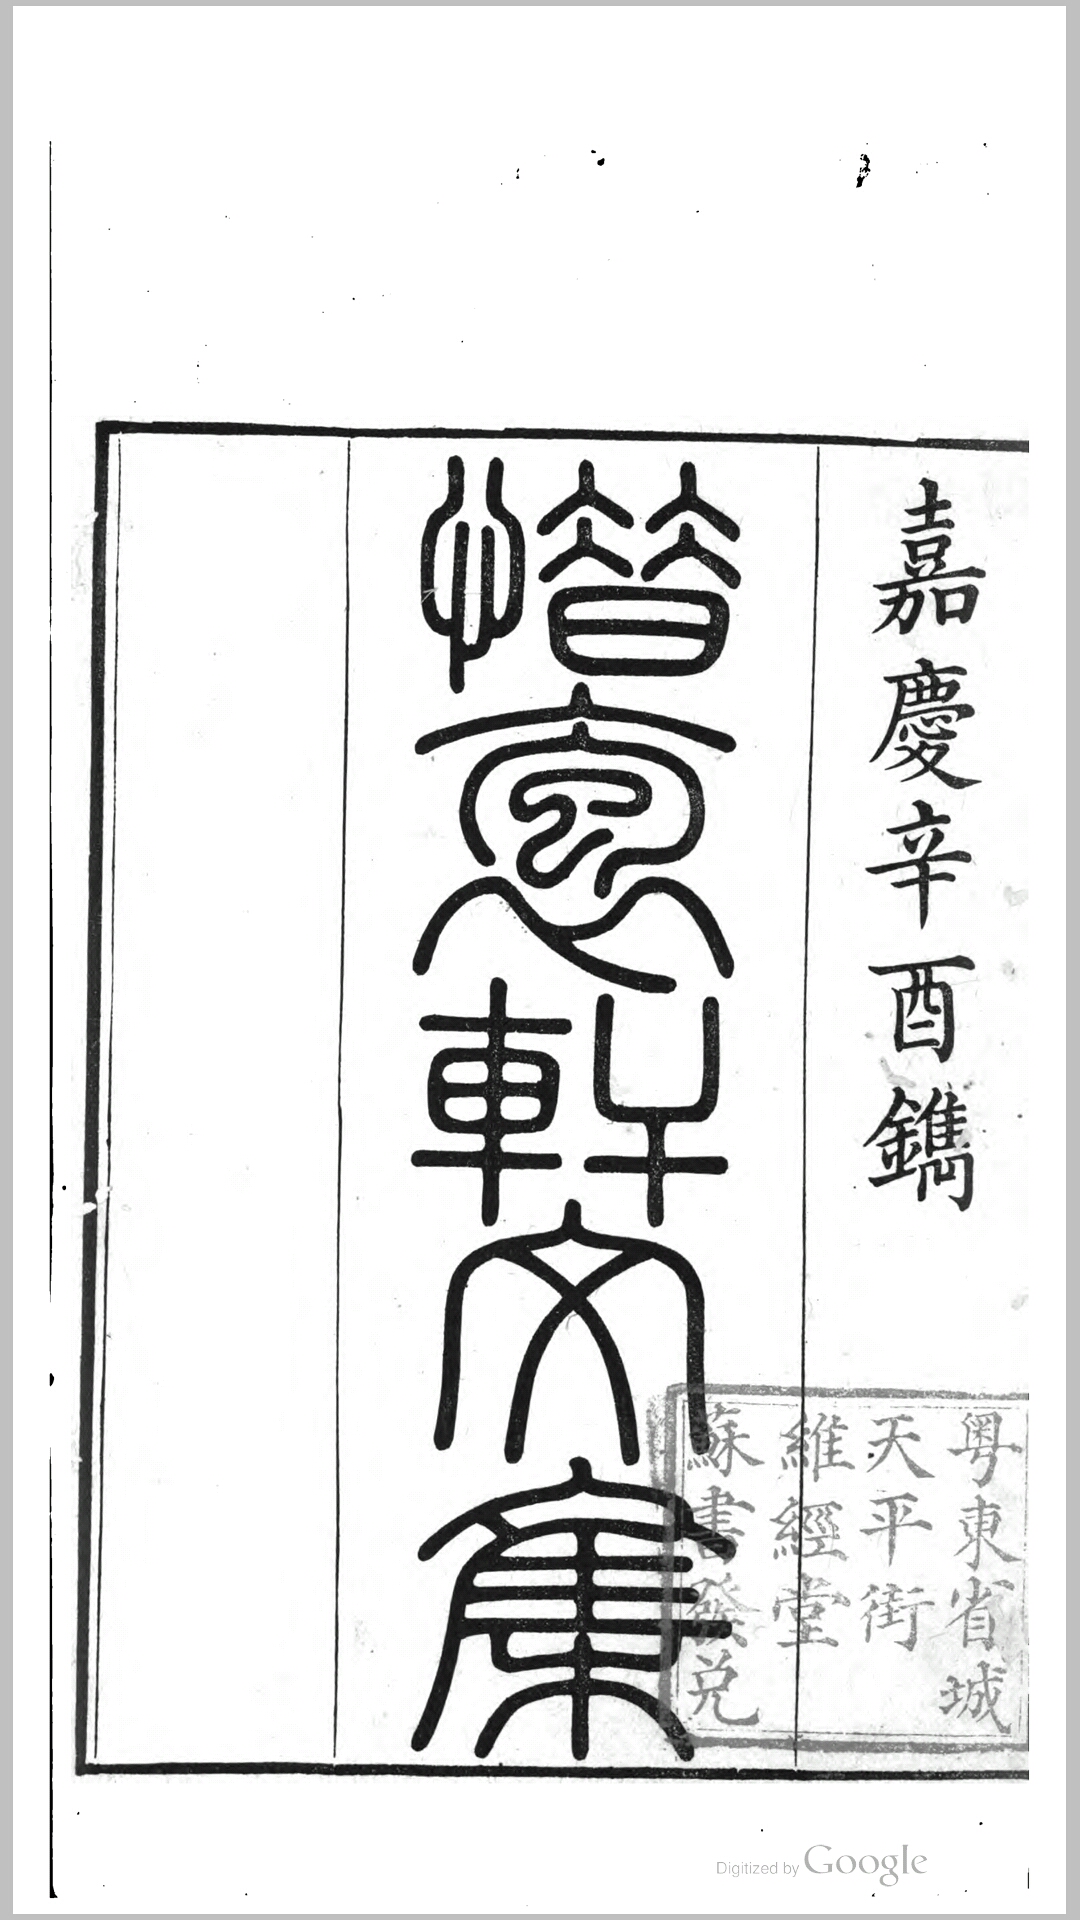 嘉慶辛酉鐫
惜袌軒文集
粵東省城
天平街
維經堂
蘇書發兌
Digitized by Google